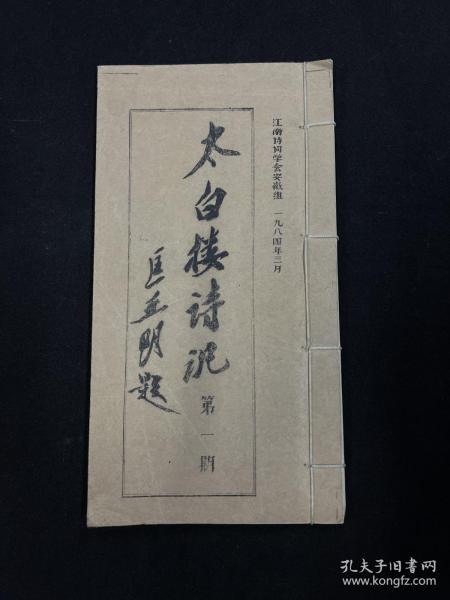 江南诗词学会安徽组 一九八四年三月
太白楼诗讯
第一期
匡亚明题
孔夫子旧书网
www.kongfz.com